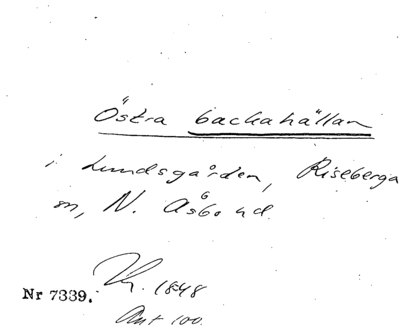 Östra backahällan
i Lundsgården, Riseberga
sn, N. Åsbo hd.
Kh. 1848
Nr 7339.
Ant 100.